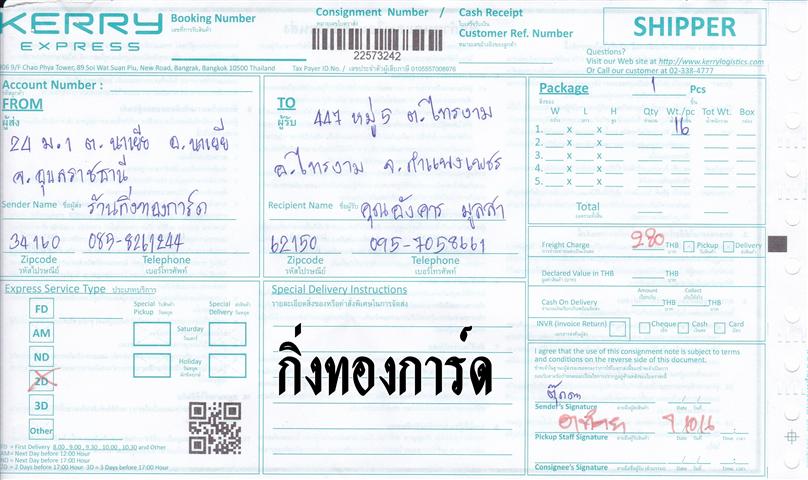 KERRY
EXPRESS
Booking Number
Consignment Number / Cash Receipt
22573242
Customer Ref. Number
SHIPPER
Questions?
Visit our Web site at http://www.kerrylogistics.com
Or Call our customer at 02-338-4777
906 9/F Chao Phya Tower, 89 Soi Wat Suan Plu, New Road, Bangrak, Bangkok 10500 Thailand
Tax Payer ID.No. / เลขประจำตัวผู้เสียภาษี 0105557008976
Account Number :
FROM
ผู้ส่ง
24 ม.1 ต.นาเยีย อ.นาเยีย
จ.อุบลราชธานี
Sender Name ชื่อผู้ส่ง ร้านกิ่งทองการ์ด
34160 085-8261244
Zipcode Telephone
รหัสไปรษณีย์ เบอร์โทรศัพท์
TO
ผู้รับ
447 หมู่5 ต.ไทรงาม
อ.ไทรงาม จ.กำแพงเพชร
Recipient Name ชื่อผู้รับ คุณอังคาร มูลสา
62150 095-7058661
Zipcode Telephone
รหัสไปรษณีย์ เบอร์โทรศัพท์
Package 1 Pcs
W L H Qty Wt./pc Tot Wt. Box
1. x x 16
2. x x
3. x x
4. x x
5. x x
Total
Freight Charge 280 THB Pickup Delivery
Declared Value in THB THB
Amount Collect
Cash On Delivery THB THB
INVR (Invoice Return) Cheque Cash Card
I agree that the use of this consignment note is subject to terms
and conditions on the reverse side of this document.
Sender's Signature
Pickup Staff Signature
Consignee's Signature
Express Service Type ประเภทบริการ
FD
AM
ND
2D
3D
Other
Special Pickup
Special Delivery
Saturday
Holiday
FD = First Delivery 8.00 , 9.00 , 9.30 , 10.00 , 10.30 and Other
AM=Next Day before 12:00 Hour
ND = Next Day before 17:00 Hour
2D = 2 Days before 17:00 Hour 3D = 3 Days before 17:00 Hour
Special Delivery Instructions
รายละเอียดสิ่งของหรือคำสั่งพิเศษในการจัดส่ง
กิ่งทองการ์ด